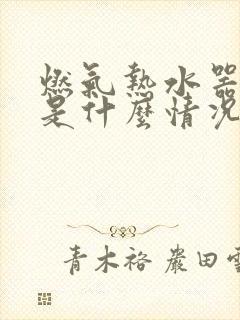 燃氣熱水器
是什麼情況
青木裕 嚴田雪